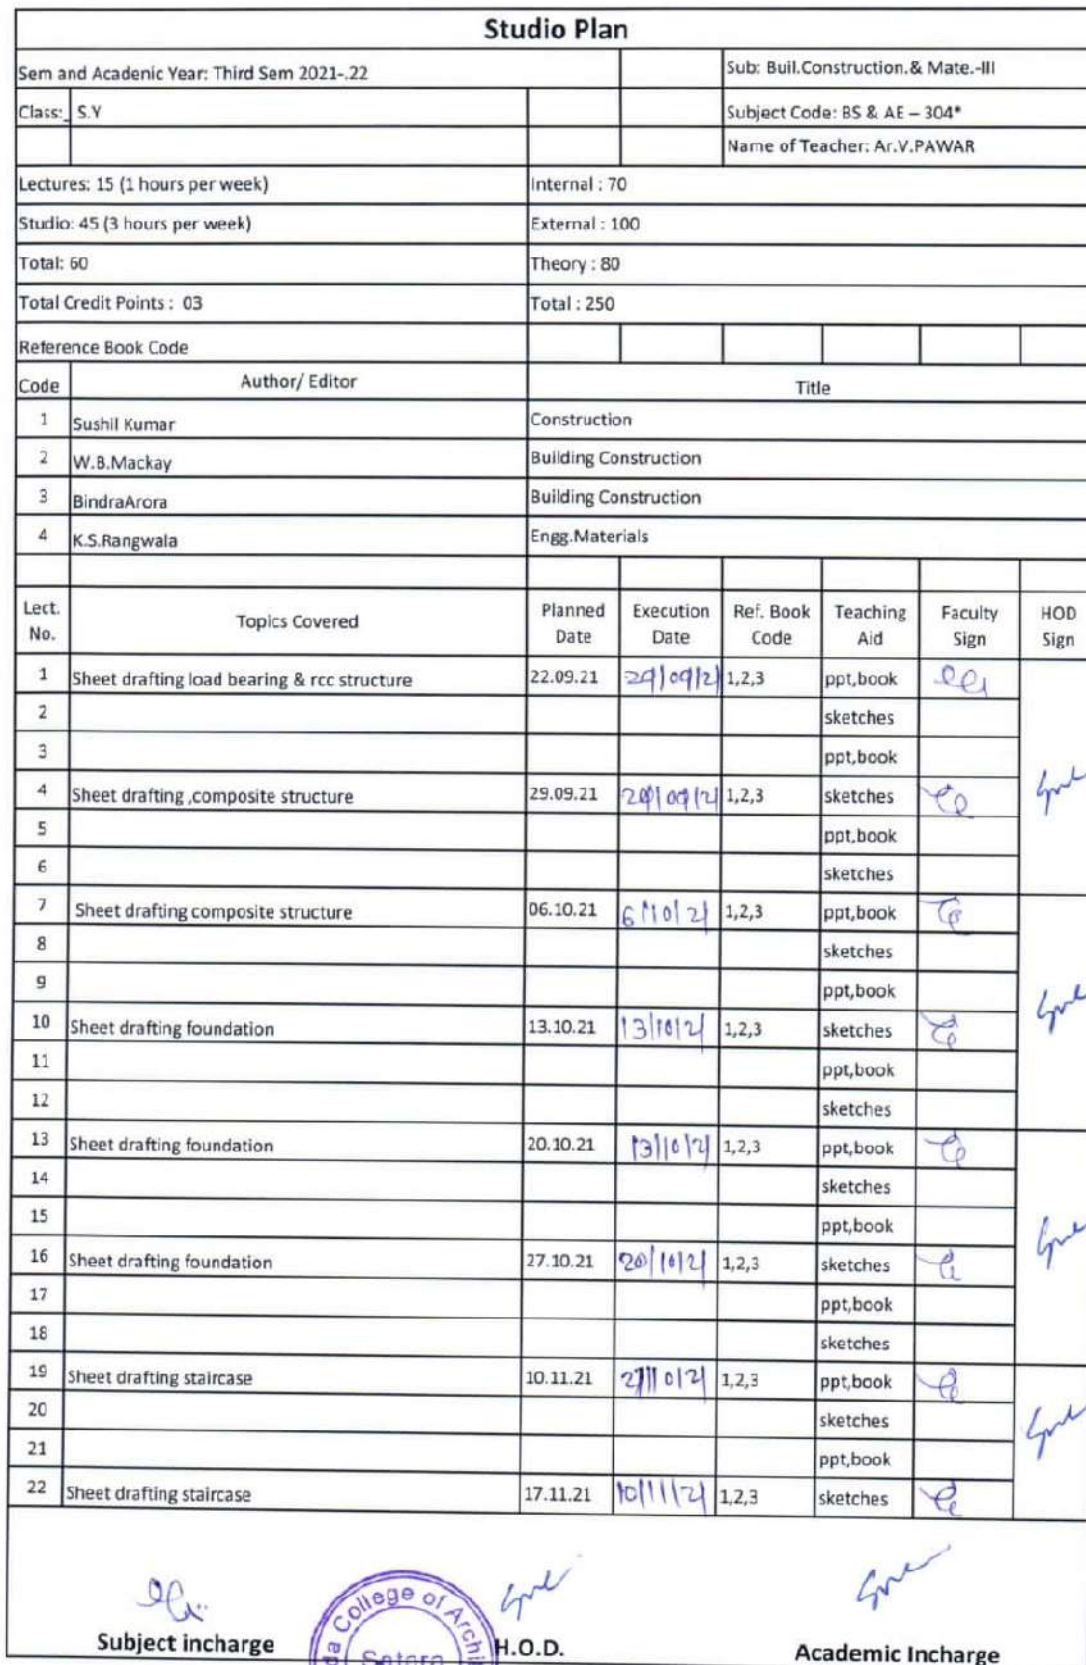 Studio Plan
Sem and Acadenic Year: Third Sem 2021-.22 Sub: Buil.Construction.& Mate.-III
Class: S.Y Subject Code: BS & AE – 304*
Name of Teacher: Ar.V.PAWAR
Lectures: 15 (1 hours per week) Internal : 70
Studio: 45 (3 hours per week) External : 100
Total: 60 Theory : 80
Total Credit Points : 03 Total : 250
Reference Book Code
Code Author/ Editor Title
1 Sushil Kumar Construction
2 W.B.Mackay Building Construction
3 BindraArora Building Construction
4 K.S.Rangwala Engg.Materials
Lect. No. Topics Covered Planned Date Execution Date Ref. Book Code Teaching Aid Faculty Sign HOD Sign
1 Sheet drafting load bearing & rcc structure 22.09.21 1,2,3 ppt,book
2 sketches
3 ppt,book
4 Sheet drafting ,composite structure 29.09.21 29/09/21 1,2,3 sketches
5 ppt,book
6 sketches
7 Sheet drafting composite structure 06.10.21 6/10/21 1,2,3 ppt,book
8 sketches
9 ppt,book
10 Sheet drafting foundation 13.10.21 13/10/21 1,2,3 sketches
11 ppt,book
12 sketches
13 Sheet drafting foundation 20.10.21 13/10/21 1,2,3 ppt,book
14 sketches
15 ppt,book
16 Sheet drafting foundation 27.10.21 20/10/21 1,2,3 sketches
17 ppt,book
18 sketches
19 Sheet drafting staircase 10.11.21 27/10/21 1,2,3 ppt,book
20 sketches
21 ppt,book
22 Sheet drafting staircase 17.11.21 10/11/21 1,2,3 sketches
da College of Archi
Satara
Subject incharge H.O.D. Academic Incharge